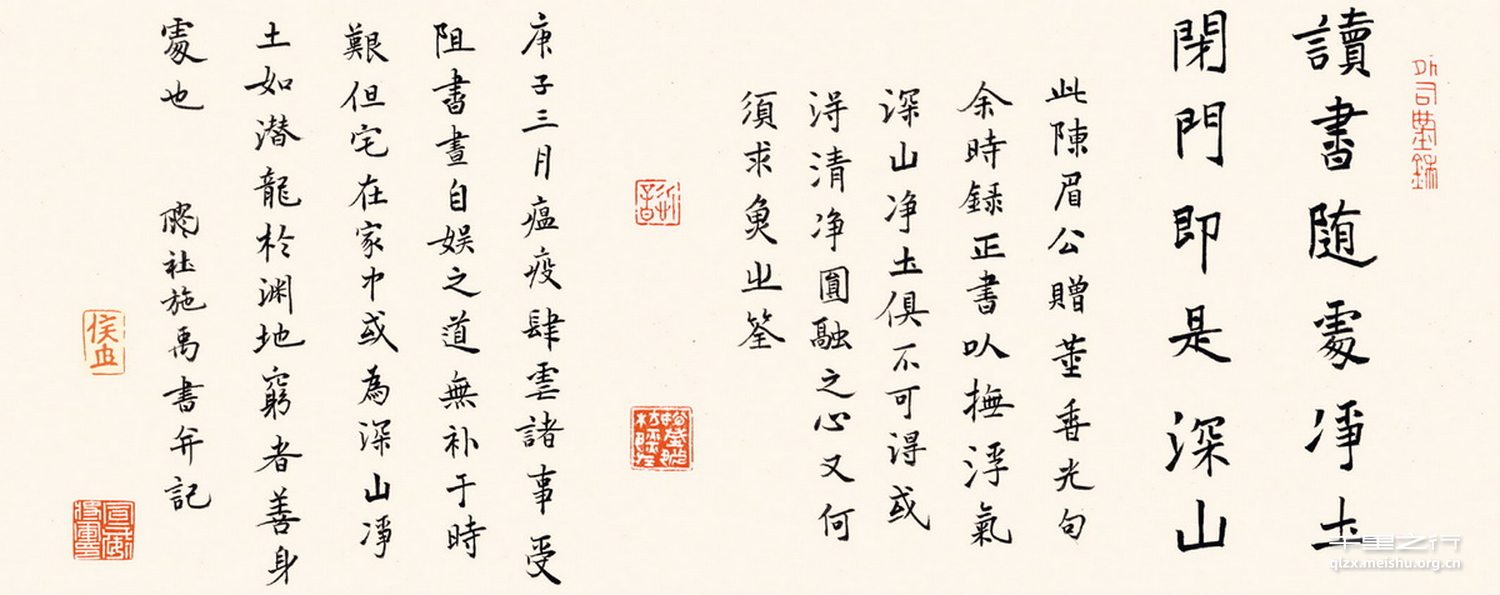 讀書隨處淨土
閉門即是深山
此陳眉公贈董香光句
余時録正書以撫浮氣
深山净土俱不可得或
淂清净圓融之心又何
須求魚之筌
庚子三月瘟疫肆雲諸事受
阻書畫自娱之道無补于時
艱但宅在家中或為深山凈
土如潜龍於淵地窮者善身
處也
社施禹書并記
千里之行
qlzx.meishu.org.cn